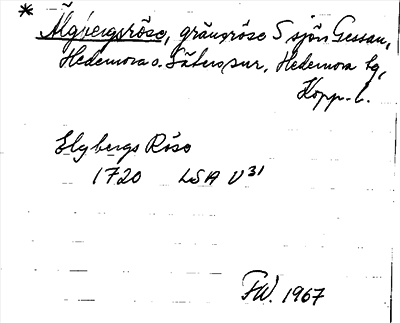 * Älgbergsröse, gränsröse S sjön Gessan,
Hedemora o. Säters snr, Hedemora tg,
Kopp. l.
Elgbergs Röso
1720 LSA U³¹
FW. 1967